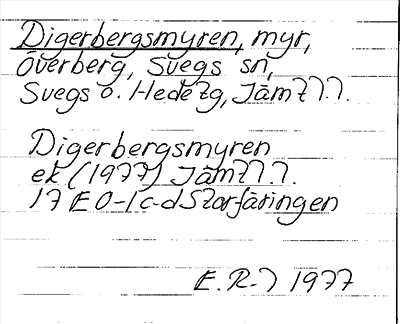 Digerbergsmyren, myr,
Överberg, Svegs sn,
Svegs o. Hede tg, Jämtl.l.
Digerbergsmyren
ek (1977) Jämtl.l.
17E 0-1c-d Storfäringen
E.R-l 1977